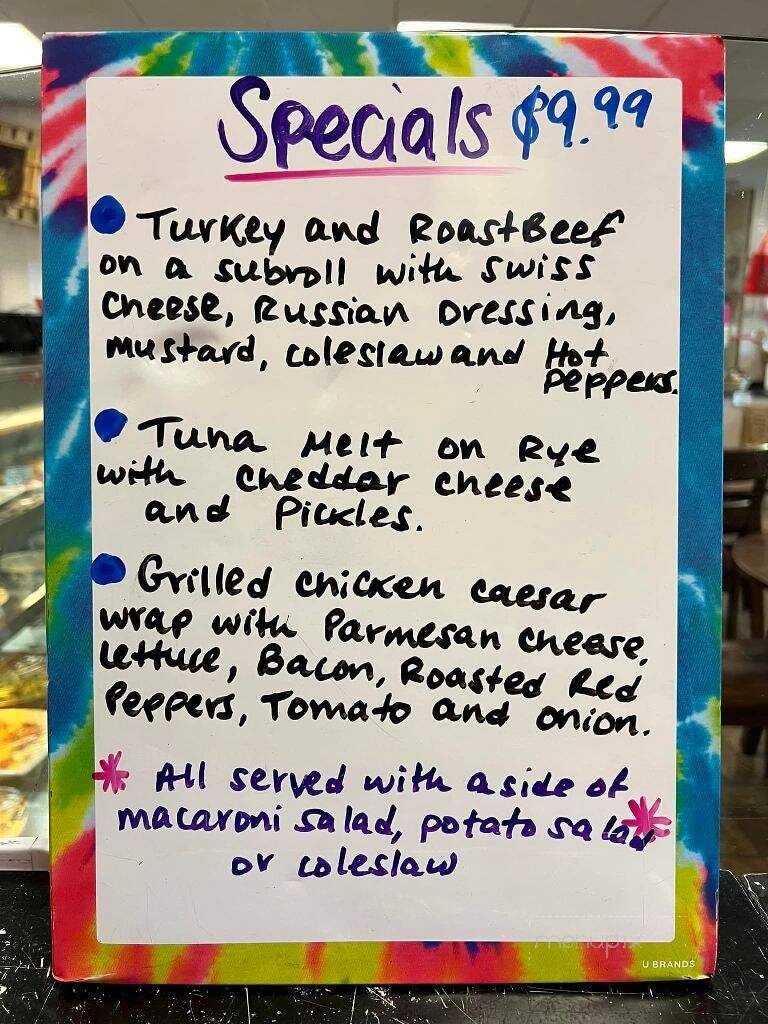 Specials $9.99
Turkey and Roast Beef
on a subroll with swiss
cheese, Russian Dressing,
mustard, coleslaw and Hot
peppers.
Tuna Melt on Rye
with cheddar cheese
and Pickles.
Grilled chicken caesar
wrap with Parmesan cheese,
lettuce, Bacon, Roasted Red
Peppers, Tomato and onion.
* All served with a side of
macaroni salad, potato salad *
or coleslaw
menupix
U BRANDS